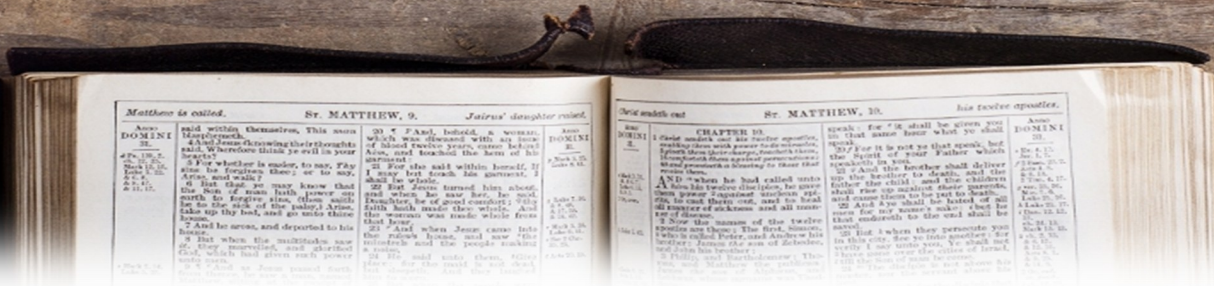 Matthew is called.
St. MATTHEW, 9.
Jairus' daughter raised.
Anno
DOMINI
31.
said within themselves, This man
blasphemeth.
4 And Jesus knowing their thoughts
said, Wherefore think ye evil in your
hearts?
5 For whether is easier, to say, Thy
sins be forgiven thee; or to say,
Arise, and walk?
6 But that ye may know that
the Son of man hath power on
earth to forgive sins, (then saith
he to the sick of the palsy,) Arise,
take up thy bed, and go unto thine
house.
7 And he arose, and departed to his
house.
8 But when the multitudes saw
it, they marvelled, and glorified
God, which had given such power
unto men.
9 ¶ And as Jesus passed forth
20 ¶ And, behold, a woman,
which was diseased with an issue
of blood twelve years, came behind
him, and touched the hem of his
garment:
21 For she said within herself, If
I may but touch his garment, I
shall be whole.
22 But Jesus turned him about,
and when he saw her, he said,
Daughter, be of good comfort; thy
faith hath made thee whole. And
the woman was made whole from
that hour.
23 And when Jesus came into
the ruler's house, and saw the
minstrels and the people making
a noise,
24 He said unto them, Give
place: for the maid is not dead,
but sleepeth. And they laughed
Anno
DOMINI
31.
Christ sendeth out
St. MATTHEW, 10.
his twelve apostles.
CHAPTER 10.
1 Christ sendeth out his twelve apostles,
enabling them with power to do miracles,
AND when he had called unto
him his twelve disciples, he gave
them power against unclean spi-
rits, to cast them out, and to heal
all manner of sickness and all man-
ner of disease.
2 Now the names of the twelve
apostles are these; The first, Simon,
who is called Peter, and Andrew his
brother; James the son of Zebedee,
and John his brother;
3 Philip, and Bartholomew; Tho-
mas, and Matthew the publican;
speak: for it shall be given you
in that same hour what ye shall
speak.
20 For it is not ye that speak, but
the Spirit of your Father which
speaketh in you.
21 And the brother shall deliver
up the brother to death, and the
father the child: and the children
shall rise up against their parents,
and cause them to be put to death.
22 And ye shall be hated of all
men for my name's sake: but he
that endureth to the end shall be
saved.
23 But when they persecute you
in this city, flee ye into another: for
verily I say unto you, Ye shall not
have gone over the cities of Israel,
till the Son of man be come.
24 The disciple is not above his
Anno
DOMINI
31.